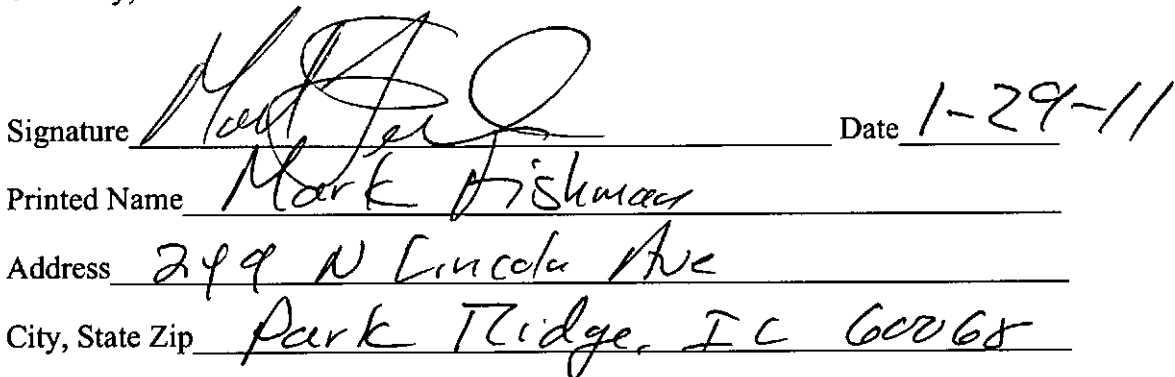 Signature Date 1-29-11
Printed Name Mark Fishman
Address 249 N Lincoln Ave
City, State Zip Park Ridge, IL 60068